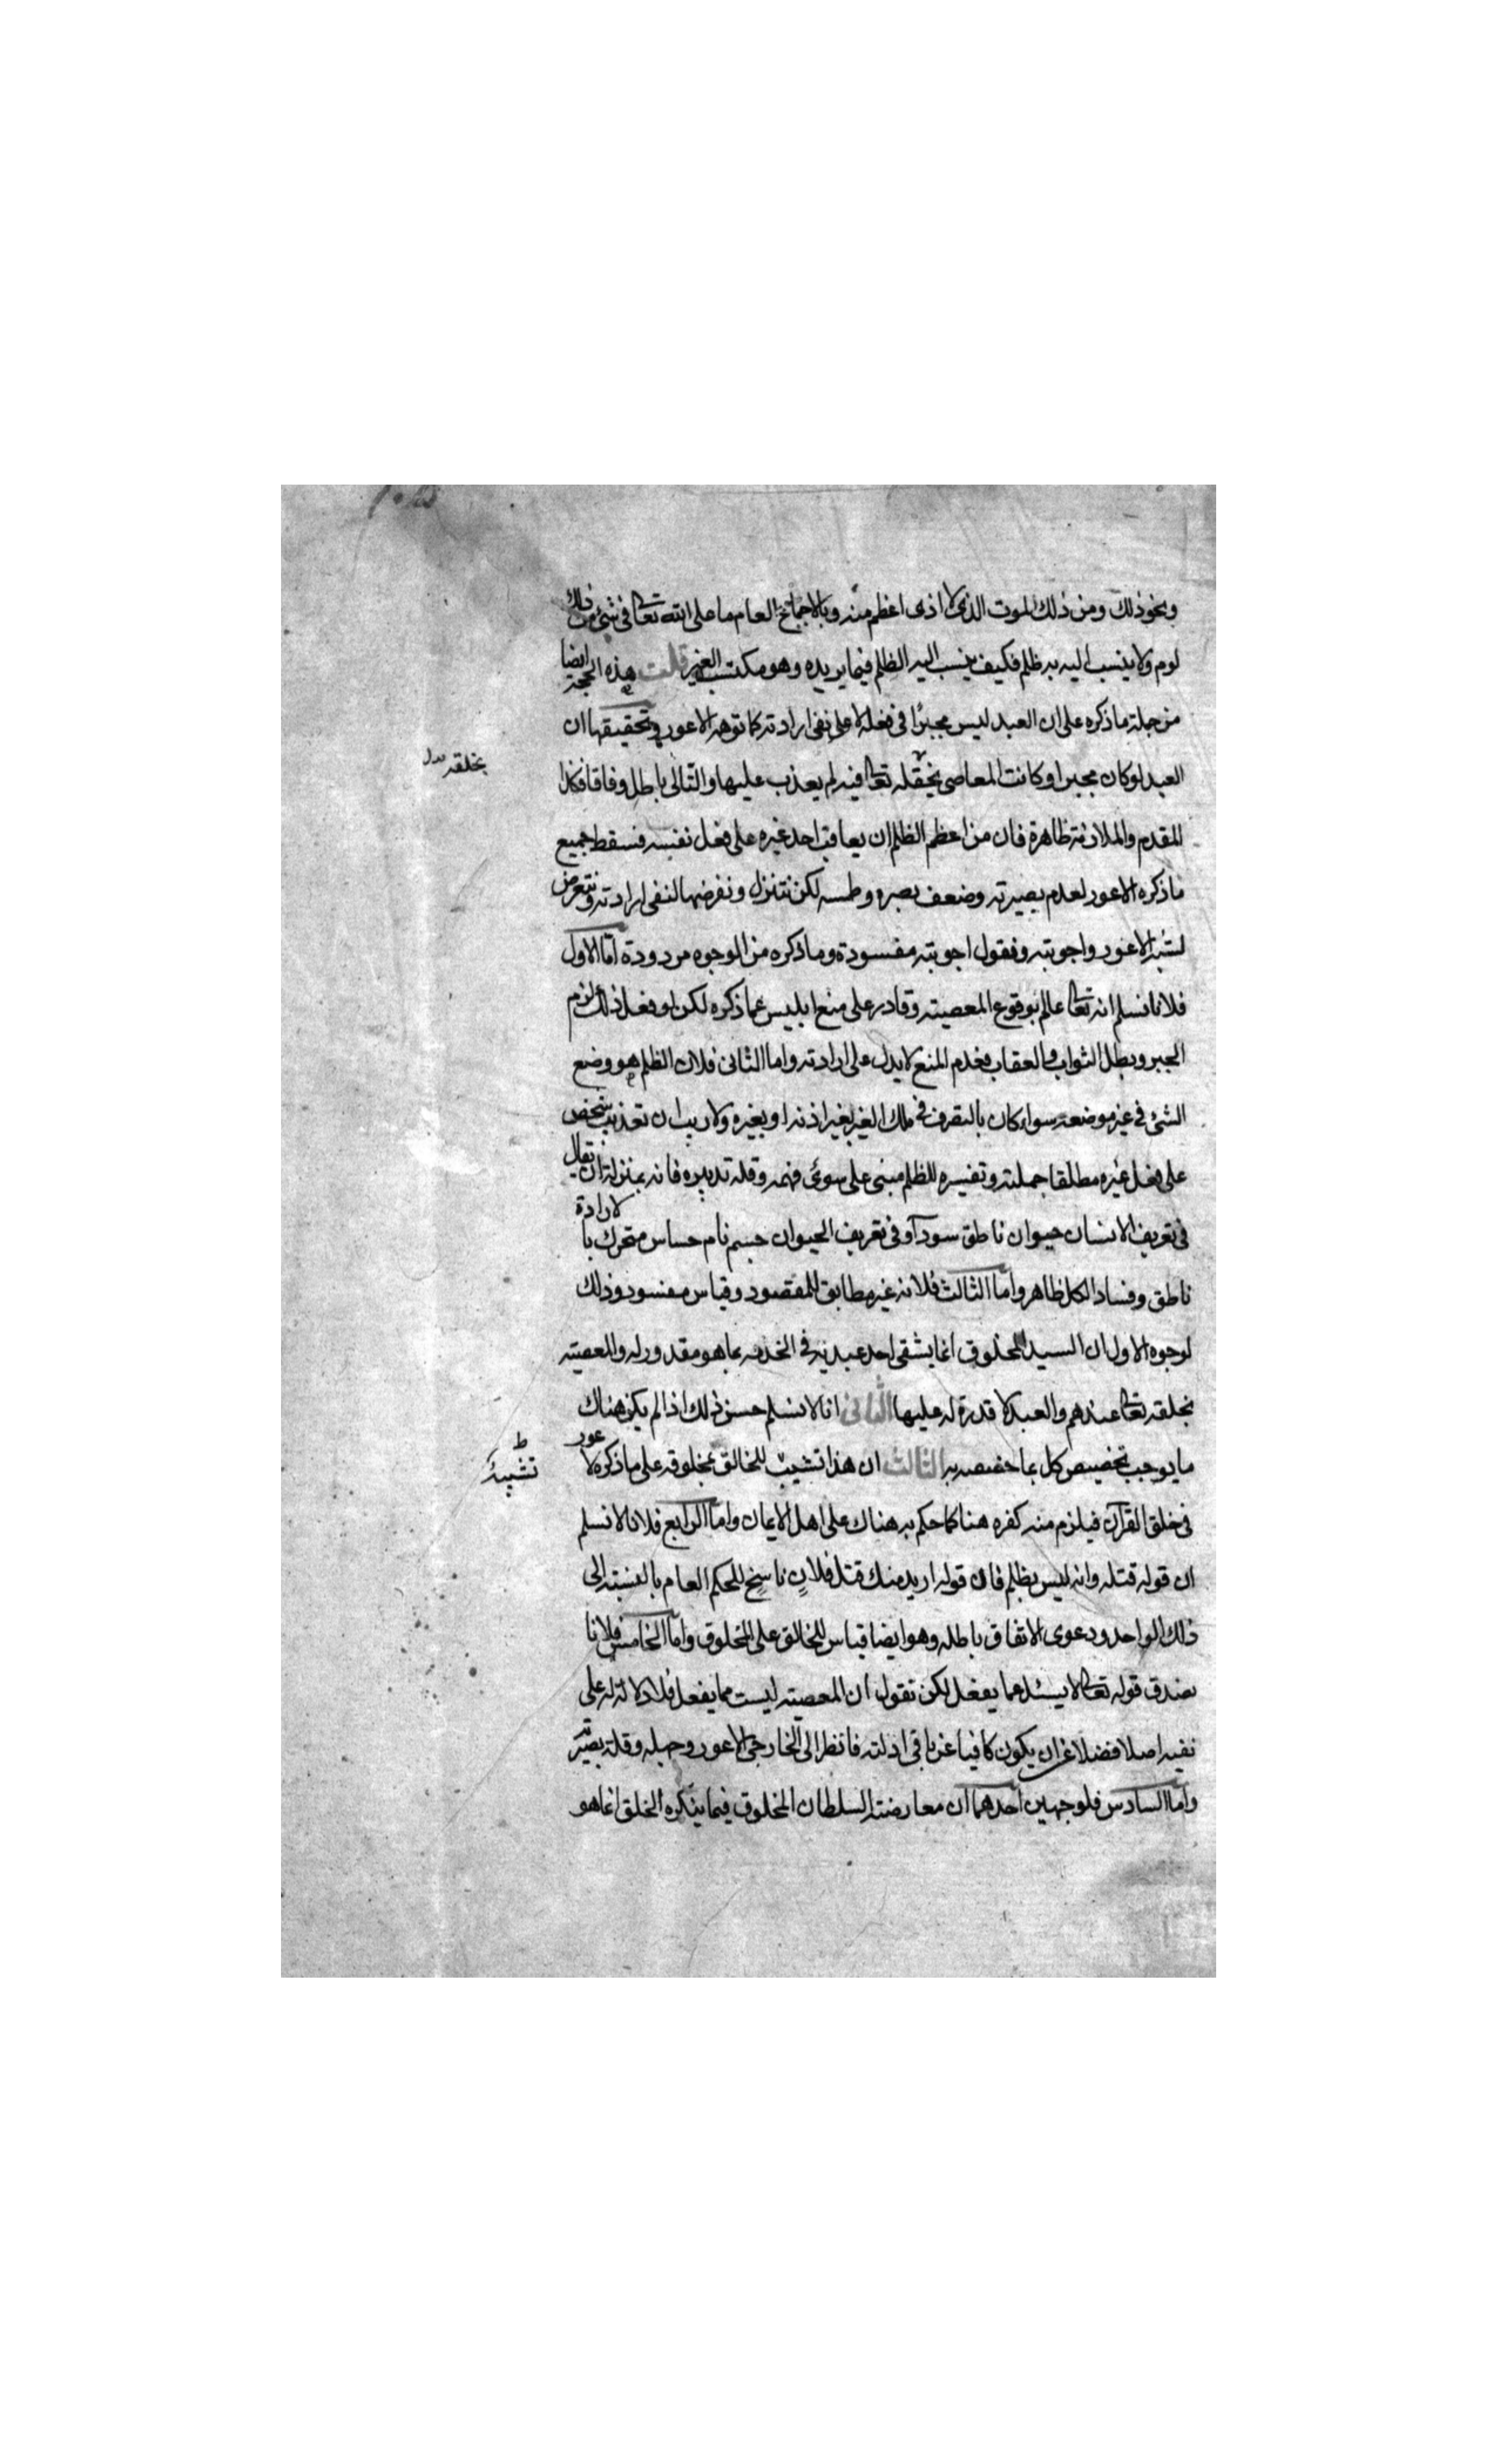 ونحو ذلك ومن ذلك الموت الذى لا اذى اعظم منه وبالاجماع العام ما على الله تعالى فى شئ من ذلك
لوم ولا ينسب اليه به ظلم فكيف ينسب اليه الظلم فيما يريده وهو مكتسب الغير قلت هذه الحجة ايضا
من جملة ما ذكره على ان العبد ليس مجبرًا فى فعله لا على نفى ارادته كما توهمه الاعور وتحقيقها ان
العبد لو كان مجبرا وكانت المعاصى تعالى فيه لم يعذب عليها والتالى باطل وفاقا فكذا
بخلقه بدل
المقدم والملازمة ظاهرة فان من اعظم الظلم ان يعاقب احد غيره على فعل نفسه فسقط جميع
ما ذكره الاعور لعدم بصيرته وضعف بصره وطمسه لكن نتنزل ونفرضها لنفى ارادته ونتعرض
لشبه الاعور واجوبته ونقول اجوبته مفسودة وما ذكره من الوجوه مردودة امّا الاول
فلانا نسلم انه تعالى عالم بوقوع المعصية وقادر على منع ابليس عما ذكره لكن لو فعل ذلك لزم
الجبر وبطل الثواب والعقاب فعدم المنع لا يدل على ارادته واما الثانى فلان الظلم هو وضع
الشئ فى غير موضعه سواء كان بالتصرف فى ملك الغير بغير اذنه او بغيره ولا ريب ان تعذيب شخص
على فعل غيره مطلقا جملته وتفسيره للظلم مبنى على سوئ فهمه وقلة تدبيره فانه بمنزلة ان يقال
فى تعريف الانسان حيوان ناطق سودآ وفى تعريف الحيوان جسم نام حساس متحرك بالارادة
ناطق وفساد الكل ظاهر واما الثالث فلانه غير مطابق للمقصود وقياس مفسود وذلك
لوجوه الاول ان السيد المخلوق انما يشقى احد عبديه فى الخدمه بما هو مقدور له والمعصية
بخلقه تعالى عندهم والعبد لا قدرة له عليها الثانى انا لا نسلم حسن ذلك اذا لم يكن هناك
ما يوجب تخصيص كل بما خصصه به الثالث ان هذا تشبيب للخالق بمخلوقه على ما ذكره لاعور
ط
تشبيه
فى خلق القرآن فيلزم منه كفره هنا كما حكم به هناك على اهل الايمان واما الرابع فلانا لا نسلم
ان قوله قتله وانه ليس بظلم فان قوله اريد منك قتل فلانٍ ناسخ للحكم العام بالنسبة الى
ذلك الواحد ودعوى الاتفاق باطله وهو ايضا قياس للخالق على المخلوق واما الخامس فلانا
نصدق قوله تعالى لا يسئل عما يفعل لكن نقول ان المعصية ليست مما يفعل فلا دلالة له على
نفيه اصلا فضلا عن ان يكون كافيا عن باقى ادلته فانظر الى الخارجى الاعور وجهله وقلة بصيرته
واما السادس فلوجهين احدهما ان معارضة السلطان المخلوق فيما ينكره الخلق انما هو